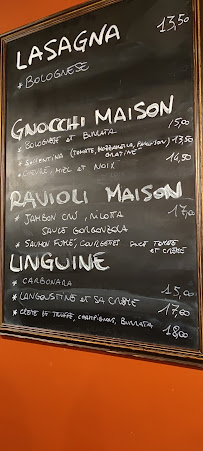 LASAGNA 13,50
* BOLOGNESE
GNOCCHI MAISON
* BOLOGNESE et BURRATA 15,00
* SORRENTINA (TOMATE, MOZZARELLA, PARMESAN) 13,50
GRATINÉ
* CHEVRE, MIEL et NOIX 14,50
RAVIOLI MAISON
* JAMBON CRU, RICOTTA 17,00
SAUCE GORGONZOLA
* SAUMON FUMÉ, COURGETTES SAUCE TOMATE
et CRÈME
LINGUINE
* CARBONARA 15,00
* LANGOUSTINE et SA CRÈME 17,00
* CRÈME DE TRUFFE, CHAMPIGNONS, BURRATA 18,00